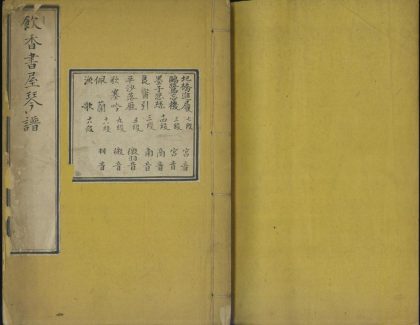 圯橋進履 七段 宮音
鷗鷺忘機 三段 宮音
墨子悲絲 十四段 商音
良宵引 三段 角音
平沙落雁 五段 徵羽音
秋塞吟 九段 徵音
佩蘭 十六段 羽音
漁歌 段
飲香書屋琴譜